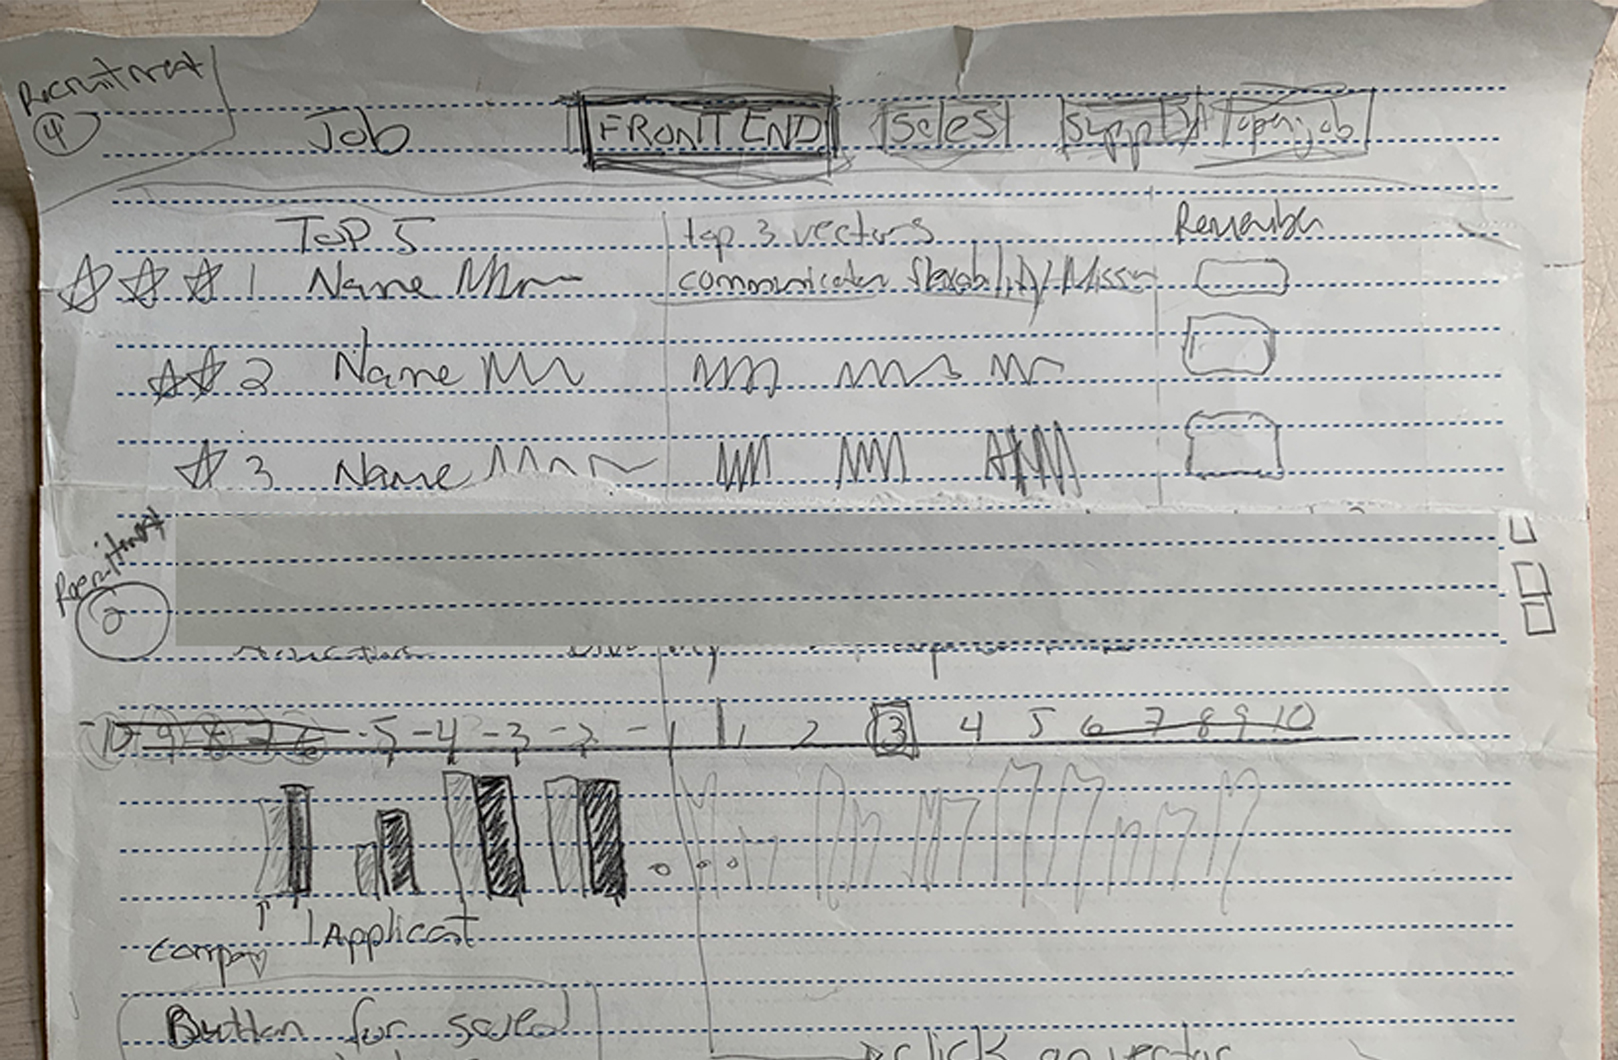 Recruitment
4
Job FRONT END Sales Support open job
TOP 5 top 3 vectors Remember
1 Name communication flexibility/Mission
2 Name
3 Name
Recruitment
2
-10 -9 -8 -7 -6 -5 -4 -3 -2 -1 | 1 2 3 4 5 6 7 8 9 10
company Applicant
Button for saved
click on vector